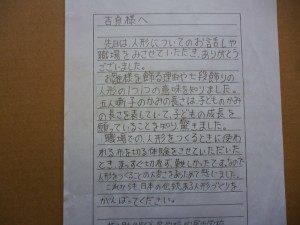 吉貞様へ
先日は、人形についてのお話しや
職場をみさせていただき、ありがとう
ございました。
お雛様を飾る理由や七段飾りの
人形の1つ1つの意味を知りました。
五人囃子のかみの長さは、子どものかみ
の長さを表していて、子どもの成長を
飾っていることを知り、驚きました。
職場での、人形をつくるときに使わ
れる布を切る体験をさせていただいた
とき、まっすぐ切れず、難しかったです。なので
人形をつくることの大変さをあらためて感じました。
これからも、日本の伝統ある人形づくりを
がんばってください。